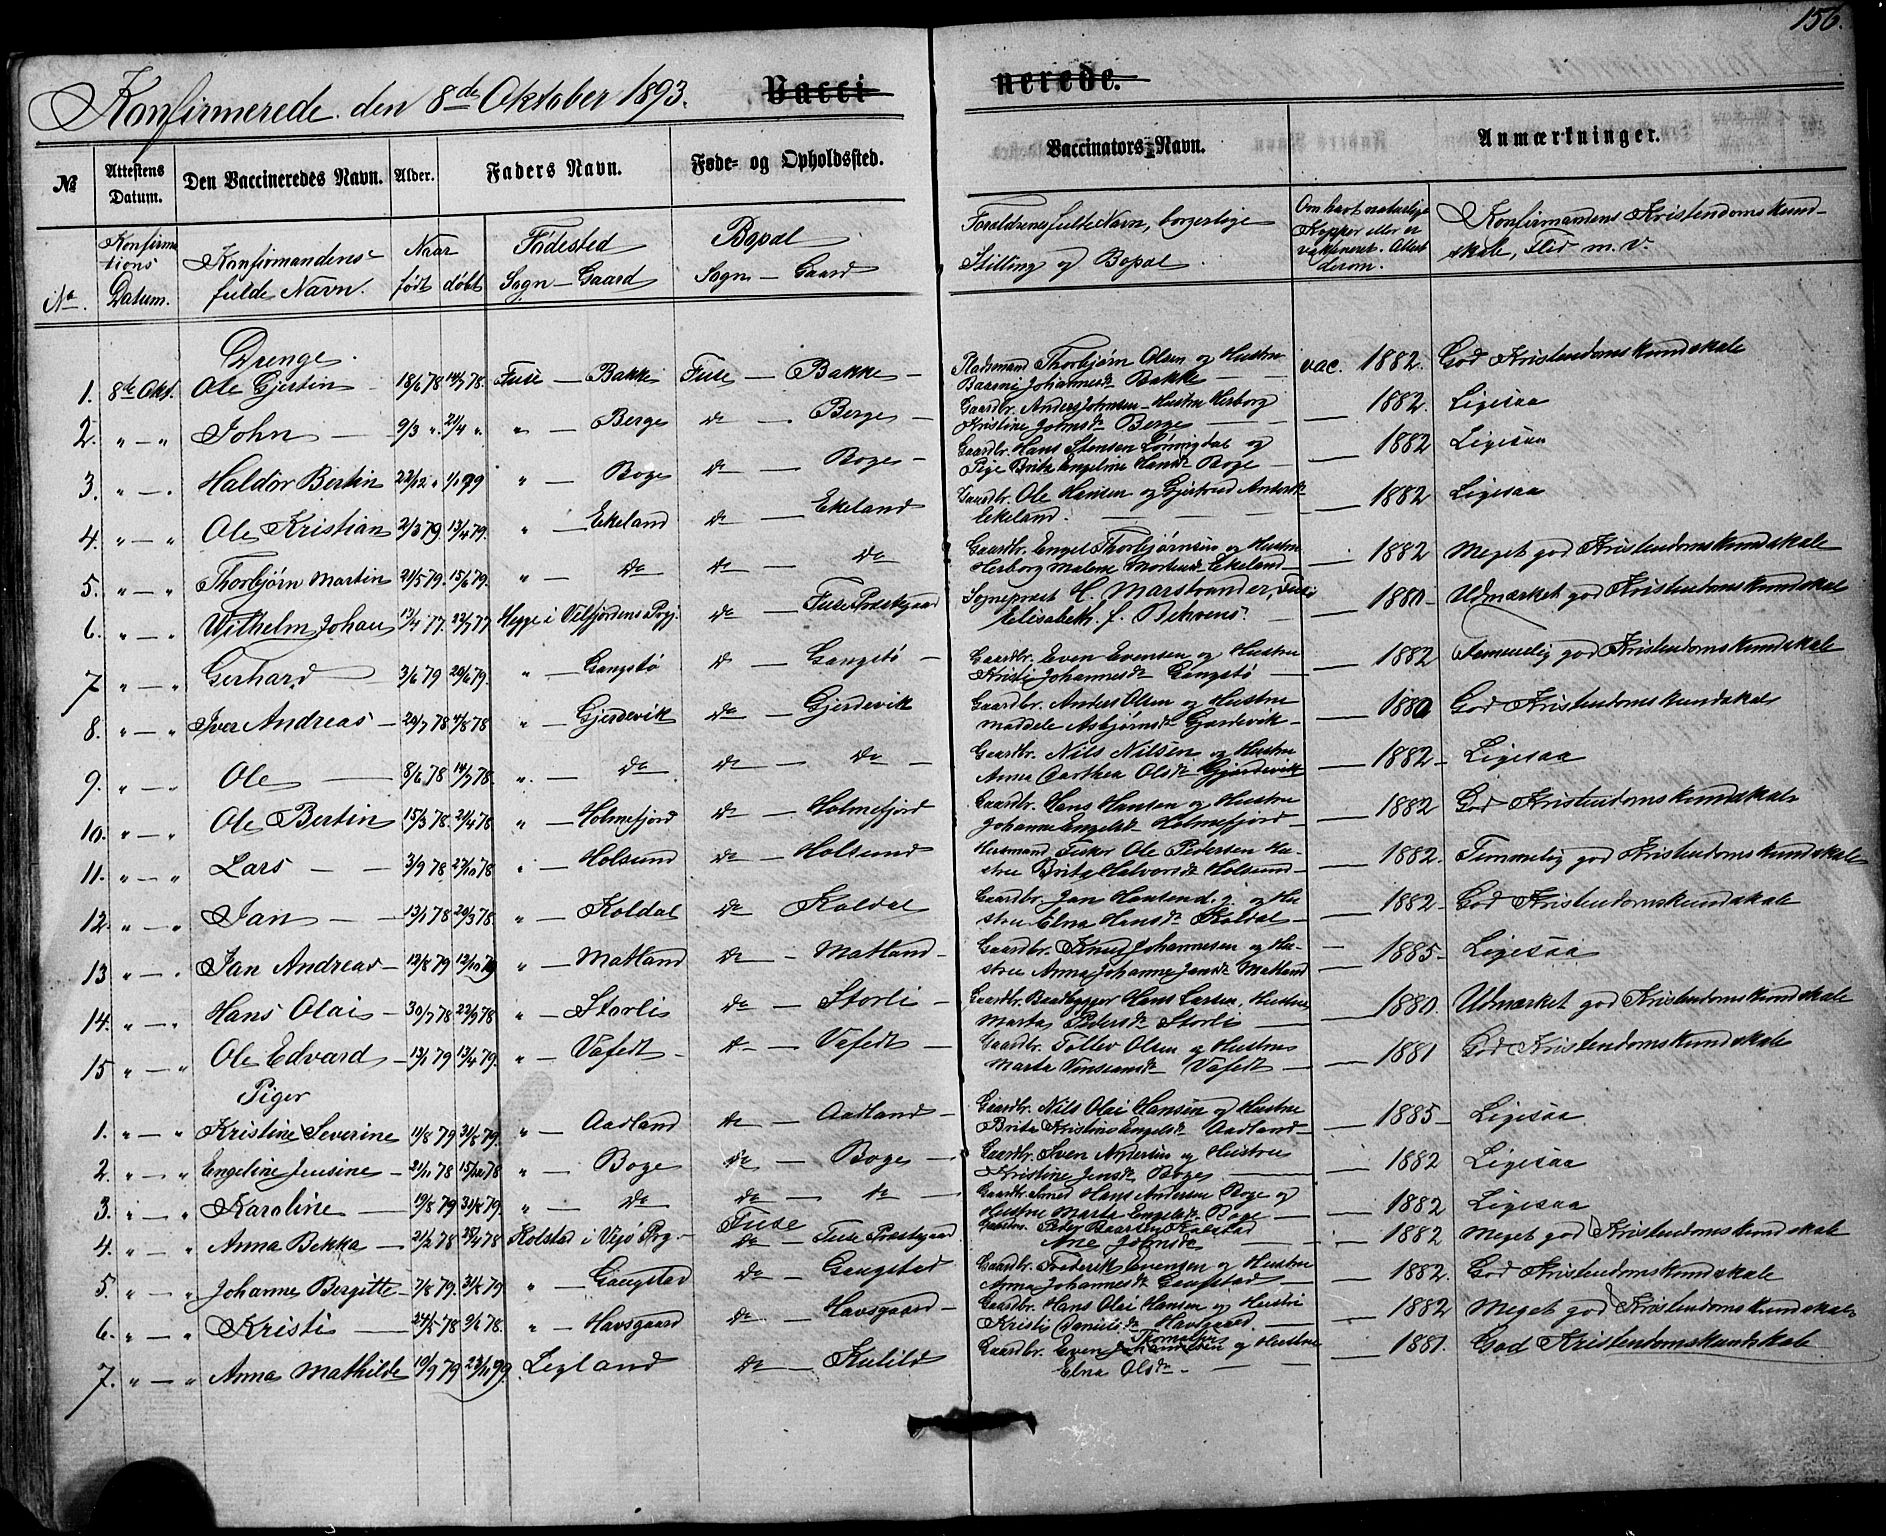 156.
Konfirmerede den 8de Oktober 1893. Vaccinerede.
№ Attestens Datum. Den Vaccineredes Navn. Alder. Faders Navn. Føde- og Opholdssted. Vaccinators Navn. Anmærkninger.
No. Konfirmationsdatum. Konfirmandens fulde Navn. Naar født døbt Fødested Sogn - Gaard Bopæl Sogn - Gaard Forældrenes fulde Navn, borgerlige Stilling og Bopæl. Om havt naturlige Kopper eller er vakcineret. Attest derom. Konfirmandens Kristendomskundskab, Flid m. v.
Drenge.
1. 8de Okt. Ole Gjertin 18/6 78 14/7 78. Fuse - Bakke Fuse - Bakke - Thorbjørn Olsen og Hustru Johannesdr Bakke vac. 1882. God Kristendomskundskab
2. " - " John 9/3 " 21/4 " " - Berge do - Berge - Gaardbr. Anders Johnsen - Hustru Herborg Kristine Johnsdr Berge - 1882. Ligesaa
3. " - " Haldor Bertin 22/12 " " - Boge do - Boge - Gaardbr. Hans Stensen og Pige Brita Engeline Hansdr Boge - 1882 Ligesaa
4. " - " Ole Kristian 2/3 79. 13/4 79. " - Ekeland do - Ekeland Gaardbr. Ole Hansen og Gjertrud Ekeland. - 1882 Ligesaa
5. " - " Thorbjørn Martin 21/5 79. 15/6 79. " - do do - do Gaardbr. Engel Thorbjørnsen og Hustru Herborg Malene Ekeland - 1882 Meget god Kristendomskundskab
6. " - " Wilhelm Johan 13/4 77. 22/7 77 Hegge i do - Fuse Præstegaard Sogneprest H. Marstrander, Fuse Elisabeth f. Behrens - 1880 - Udmærket god Kristendomskundskab
7 " - " Gerhard 3/6 79 29/6 79. " - Gangstø do - Gangstø - Gaardbr. Even Evensen og Hustru Kristi Johannesdr Gangstø - 1882 Temmelig god Kristendomskundskab
8. " - " Iver Andreas - 20/7 78 4/8 78 " - Gjerdevik do - Gjerdevik Gaardbr. Anders Olsen og Hustru Asbjørnsdr Gjerdevik - 1880 God Kristendomskundskab
9. " - " Ole - 8/6 78 14/7 78. " - do do - do - Gaardbr. Nils Nilsen og Hustru Anna Olsdr Gjerdevik - 1882 - Ligesaa
10. " - " Ole Bertin 15/3 78 21/4 78 " - Holmefjord do - Holmefjord Gaardbr. Hans Hansen og Hustru Johanne Engelsdr Holmefjord - 1882 God Kristendomskundskab
11. " - " Lars - 3/9 78 27/10 78 " - Holsund do - Holsund Husmand Fisker Ole Pedersen Hustru Brita Halvorsdr Holsund - 1882. Temmelig god Kristendomskundskab
12. " - " Jan - 13/1 78 20/3 78 " - Koldal do - Koldal Gaardbr. Jan og Hustru Elna Hansdr Koldal - 1882 - God Kristendomskundskab
13 " - " Jan Andreas - 12/8 79 12/10 79 " - Matland do - Matland - Gaardbr. Knud Johannesen og Hustru Anna Johanne Jansdr Matland - 1885 - Ligesaa
14. " - " Hans Olai - 30/7 78 22/9 78 " - Storli do - Storli - Gaardbr. Baadbygger Hans Larsen, Hustru Marta Pedersdr Storli - 1880. Udmærket god Kristendomskundskab
15 " - " Ole Edvard - 13/1 79 13/4 79. " - Vafedt - do - Vafedt - Gaardbr. Tollev Olsen og Hustru Marta Vafedt - 1881 God Kristendomskundskab
Piger
1. " - " Kristine Severine 11/8 79 31/8 79. " - Aadland do - Aadland - Gaardbr. Nils Olai Hansen og Hustru Brita Kristine Engelsdr Aadland - 1885 - Ligesaa
2. " - " Engeline Jensine - 21/11 78 15/12 78 " - Boge do - Boge - Gaardbr. Sven Andersen og Hustru Kristine Jensdr Boge - 1882 Ligesaa
3. " - " Karoline - 19/8 79 31/8 79. " - do do - do - Gaardbr. Smed Hans Andersen Boge og Hustru Marta Engelsdr Boge - 1882 Ligesaa
4. " - " Anna Bekka - 21/2 78 78 Kolstad i Vejø Prg. - Fuse do - Fuse Præstegaard Peder Kolstad Ane Johnsdr - 1882 Meget god Kristendomskundskab
5. " - " Johanne Bergitte - 7/8 79. 31/8 79 " - Gangstad do - Gangstad Gaardbr. Frederik Evensen og Hustru Anna Johannesdr Gangstad - 1882. God Kristendomskundskab
6. " - " Kristi - 24/5 78 9/6 78. " - Havsgaard do - Havsgaard - Gaardbr. Hans Olai Hansen og Hustru Kristi Danielsdr Havsgaard. - 1882 Meget god Kristendomskundskab
7. " - " Anna Mathilde 19/9 79 Ligland do - Kulild Gaardbr. Even og Hustru Elna Olsdr - 1881. God Kristendomskundskab